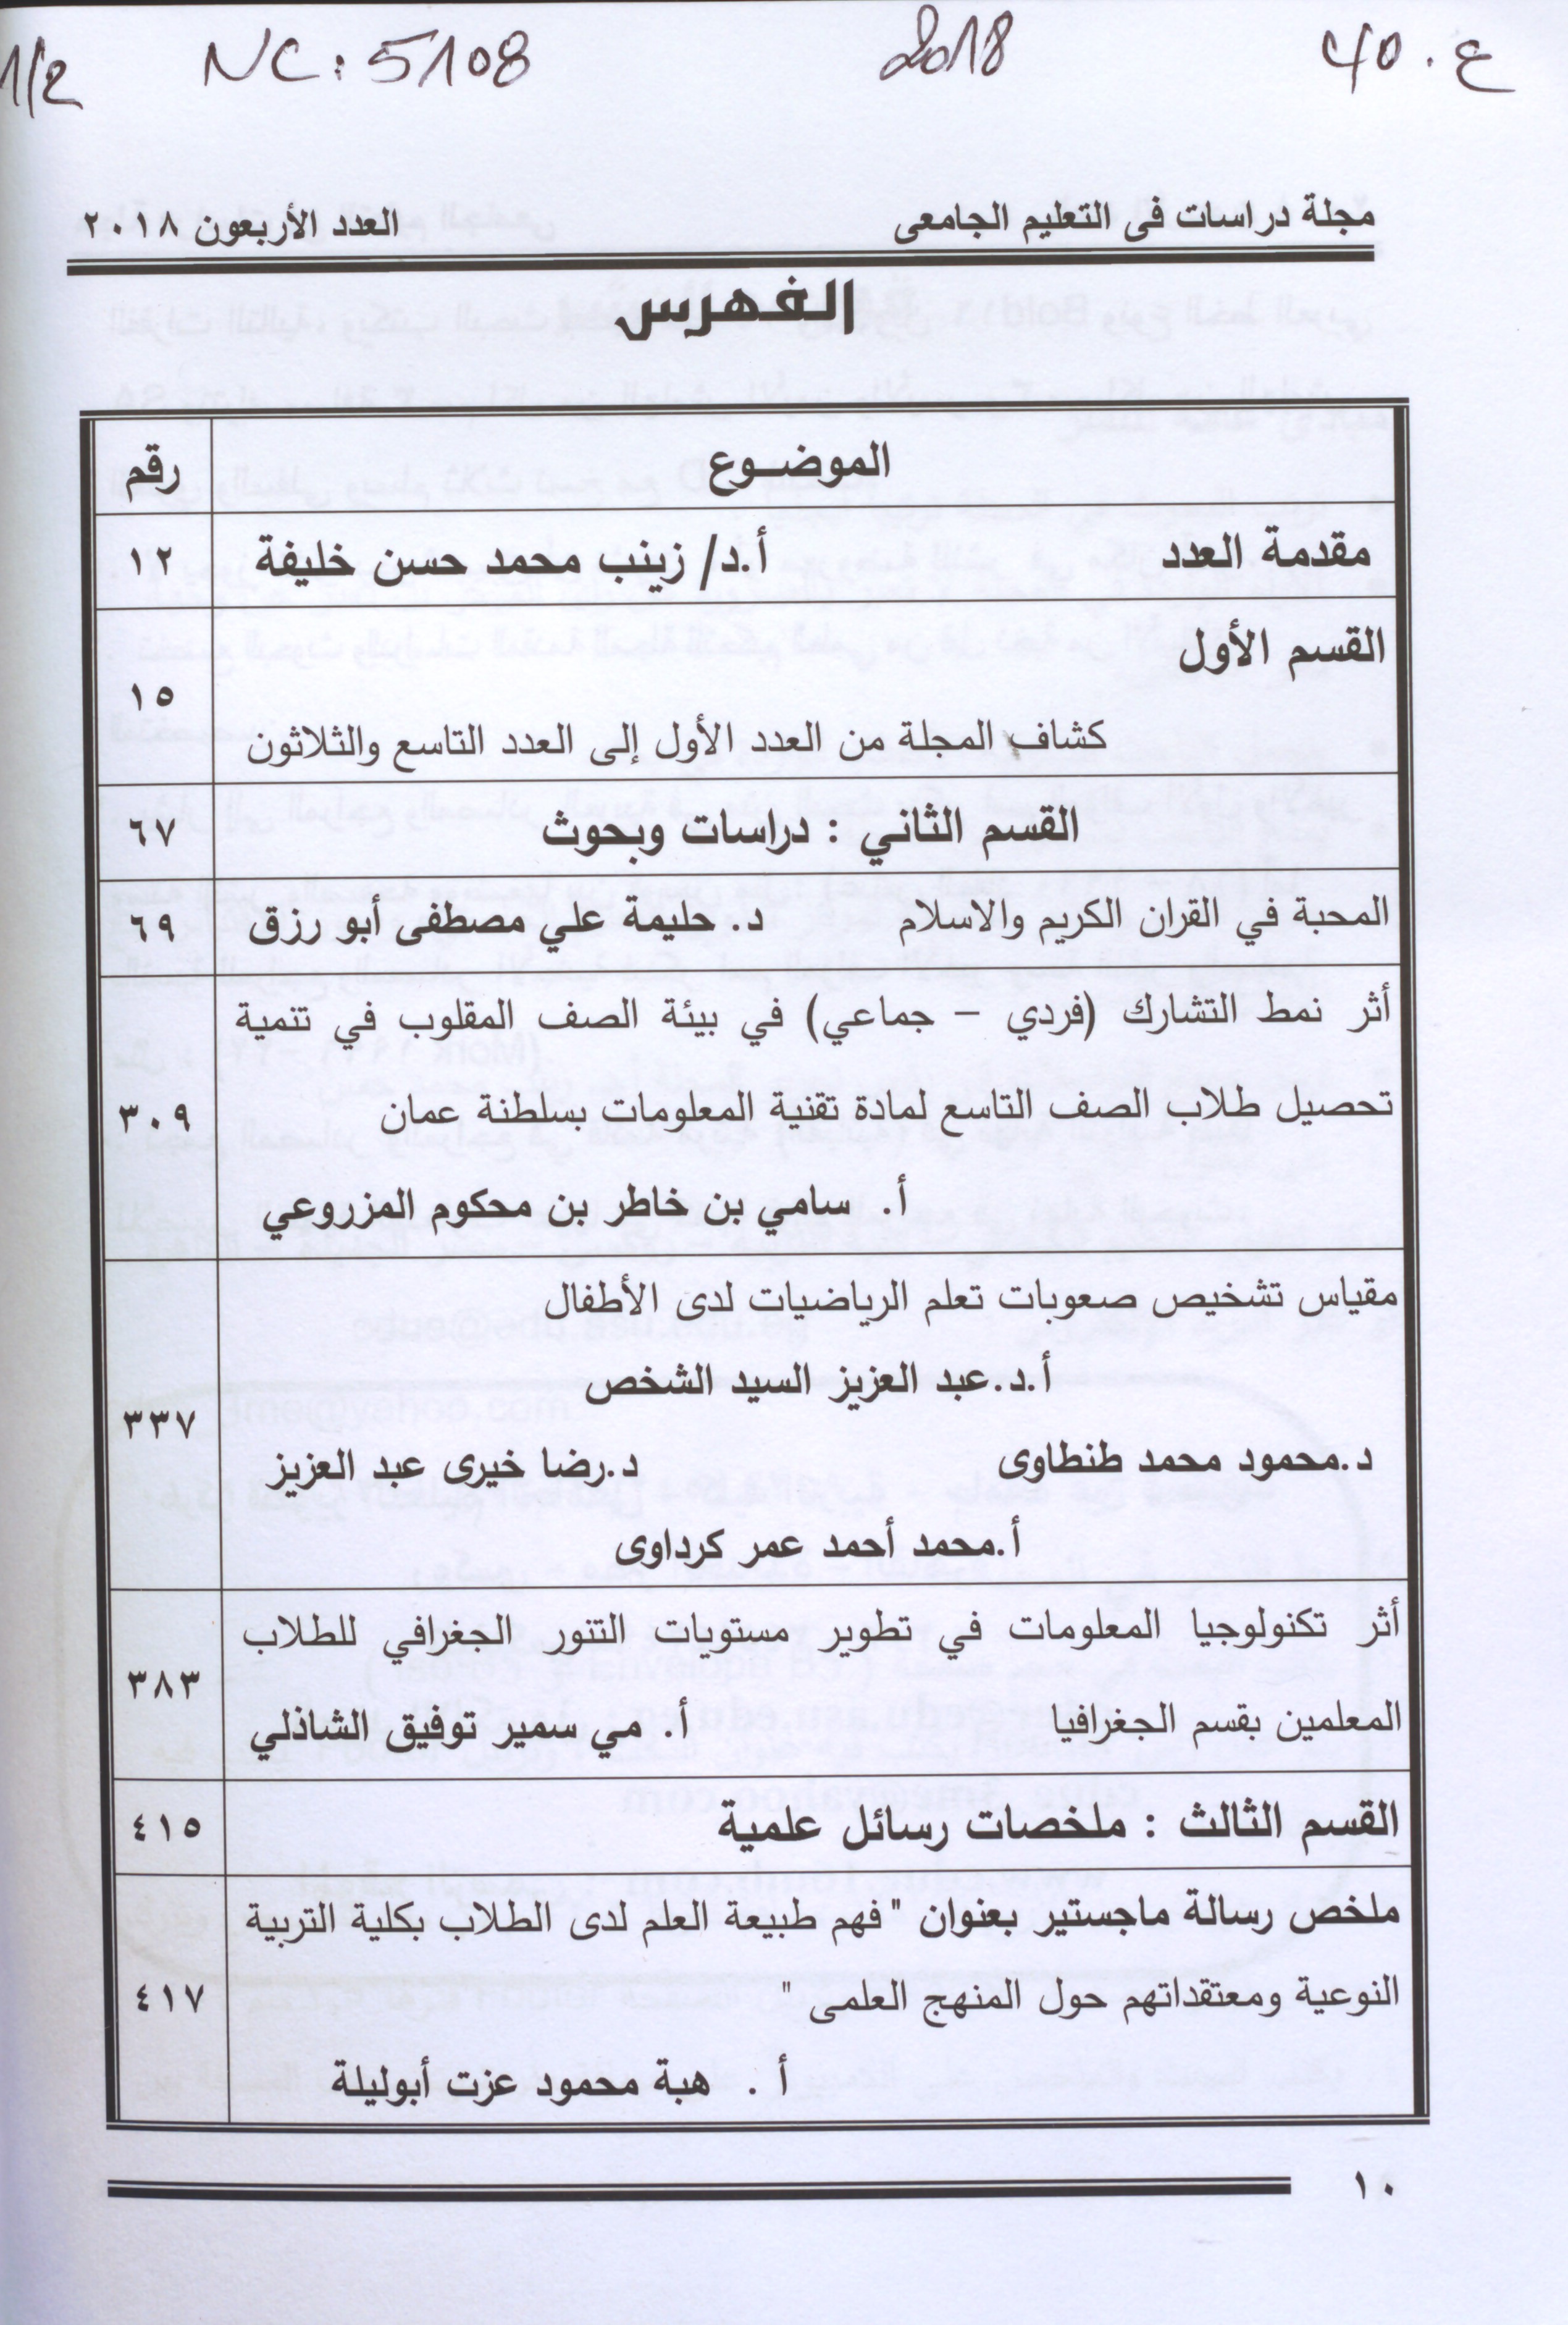 1/2 NC: 5108 2018 ع. 40
مجلة دراسات فى التعليم الجامعى العدد الأربعون ٢٠١٨
الفهرس
الموضـوع رقم
مقدمة العدد أ.د/ زينب محمد حسن خليفة ١٢
القسم الأول
١٥
كشاف المجلة من العدد الأول إلى العدد التاسع والثلاثون
القسم الثاني : دراسات وبحوث ٦٧
المحبة في القران الكريم والاسلام د. حليمة علي مصطفى أبو رزق ٦٩
أثر نمط التشارك (فردي – جماعي) في بيئة الصف المقلوب في تنمية
تحصيل طلاب الصف التاسع لمادة تقنية المعلومات بسلطنة عمان ٣٠٩
أ. سامي بن خاطر بن محكوم المزروعي
مقياس تشخيص صعوبات تعلم الرياضيات لدى الأطفال
أ.د.عبد العزيز السيد الشخص
٣٣٧
د.محمود محمد طنطاوى د.رضا خيرى عبد العزيز
أ.محمد أحمد عمر كرداوى
أثر تكنولوجيا المعلومات في تطوير مستويات التنور الجغرافي للطلاب
٣٨٣
المعلمين بقسم الجغرافيا أ. مي سمير توفيق الشاذلي
القسم الثالث : ملخصات رسائل علمية ٤١٥
ملخص رسالة ماجستير بعنوان " فهم طبيعة العلم لدى الطلاب بكلية التربية
النوعية ومعتقداتهم حول المنهج العلمى " ٤١٧
أ . هبة محمود عزت أبوليلة
١٠